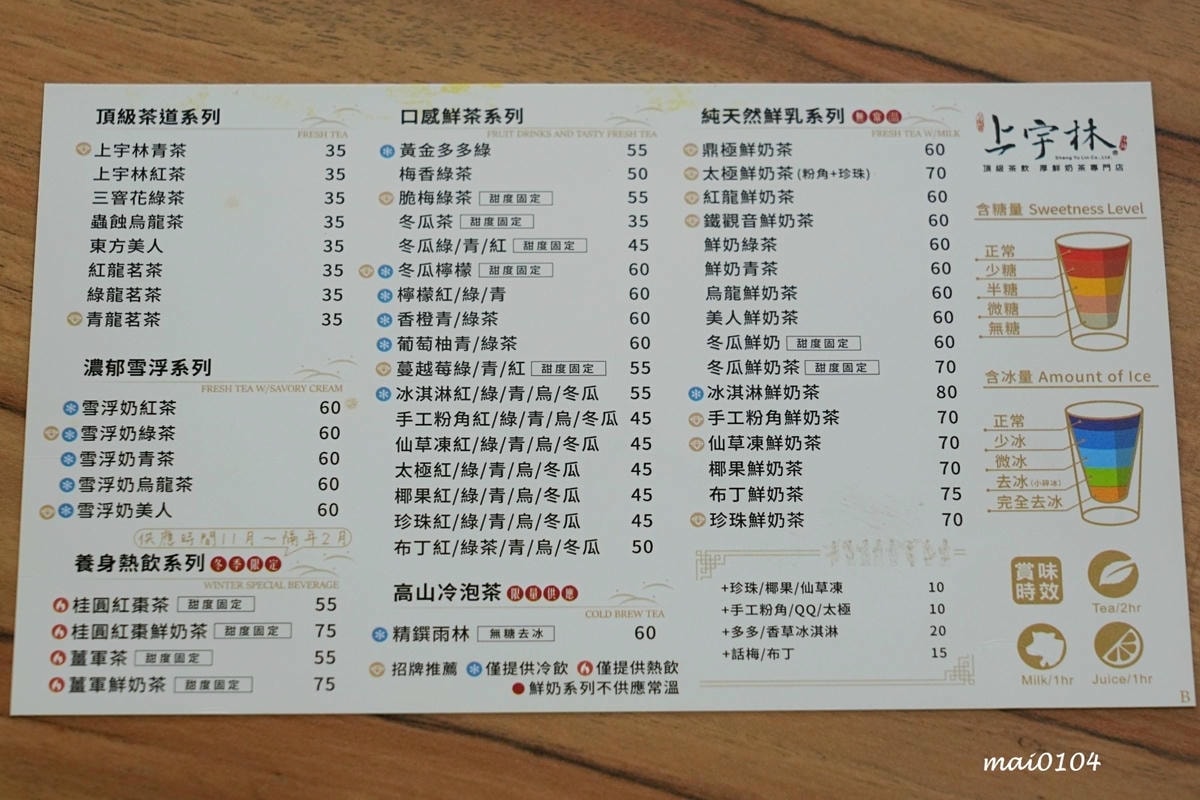 頂級茶道系列
FRESH TEA
上宇林青茶 35
上宇林紅茶 35
三窨花綠茶 35
蟲蝕烏龍茶 35
東方美人 35
紅龍茗茶 35
綠龍茗茶 35
青龍茗茶 35
濃郁雪浮系列
FRESH TEA W/SAVORY CREAM
雪浮奶紅茶 60
雪浮奶綠茶 60
雪浮奶青茶 60
雪浮奶烏龍茶 60
雪浮奶美人 60
供應時間11月~隔年2月
養身熱飲系列 冬季限定
WINTER SPECIAL BEVERAGE
桂圓紅棗茶 甜度固定 55
桂圓紅棗鮮奶茶 甜度固定 75
薑軍茶 甜度固定 55
薑軍鮮奶茶 甜度固定 75
口感鮮茶系列
FRUIT DRINKS AND TASTY FRESH TEA
黃金多多綠 55
梅香綠茶 50
脆梅綠茶 甜度固定 55
冬瓜茶 甜度固定 35
冬瓜綠/青/紅 甜度固定 45
冬瓜檸檬 甜度固定 60
檸檬紅/綠/青 60
香橙青/綠茶 60
葡萄柚青/綠茶 60
蔓越莓綠/青/紅 甜度固定 55
冰淇淋紅/綠/青/烏/冬瓜 55
手工粉角紅/綠/青/烏/冬瓜 45
仙草凍紅/綠/青/烏/冬瓜 45
太極紅/綠/青/烏/冬瓜 45
椰果紅/綠/青/烏/冬瓜 45
珍珠紅/綠/青/烏/冬瓜 45
布丁紅/綠茶/青/烏/冬瓜 50
高山冷泡茶 限量供應
COLD BREW TEA
精鐉雨林 無糖去冰 60
招牌推薦 僅提供冷飲 僅提供熱飲
鮮奶系列不供應常溫
純天然鮮乳系列 無常溫
FRESH TEA W/MILK
鼎極鮮奶茶 60
太極鮮奶茶(粉角+珍珠) 70
紅龍鮮奶茶 60
鐵觀音鮮奶茶 60
鮮奶綠茶 60
鮮奶青茶 60
烏龍鮮奶茶 60
美人鮮奶茶 60
冬瓜鮮奶 甜度固定 60
冬瓜鮮奶茶 甜度固定 70
冰淇淋鮮奶茶 80
手工粉角鮮奶茶 70
仙草凍鮮奶茶 70
椰果鮮奶茶 70
布丁鮮奶茶 75
珍珠鮮奶茶 70
+珍珠/椰果/仙草凍 10
+手工粉角/QQ/太極 10
+多多/香草冰淇淋 20
+話梅/布丁 15
上宇林
Shang Yu Lin Co., Ltd.
頂級茶飲 厚鮮奶茶專門店
含糖量 Sweetness Level
正常
少糖
半糖
微糖
無糖
含冰量 Amount of Ice
正常
少冰
微冰
去冰(小碎冰)
完全去冰
賞味
時效
Tea/2hr
Milk/1hr
Juice/1hr
B
mai0104